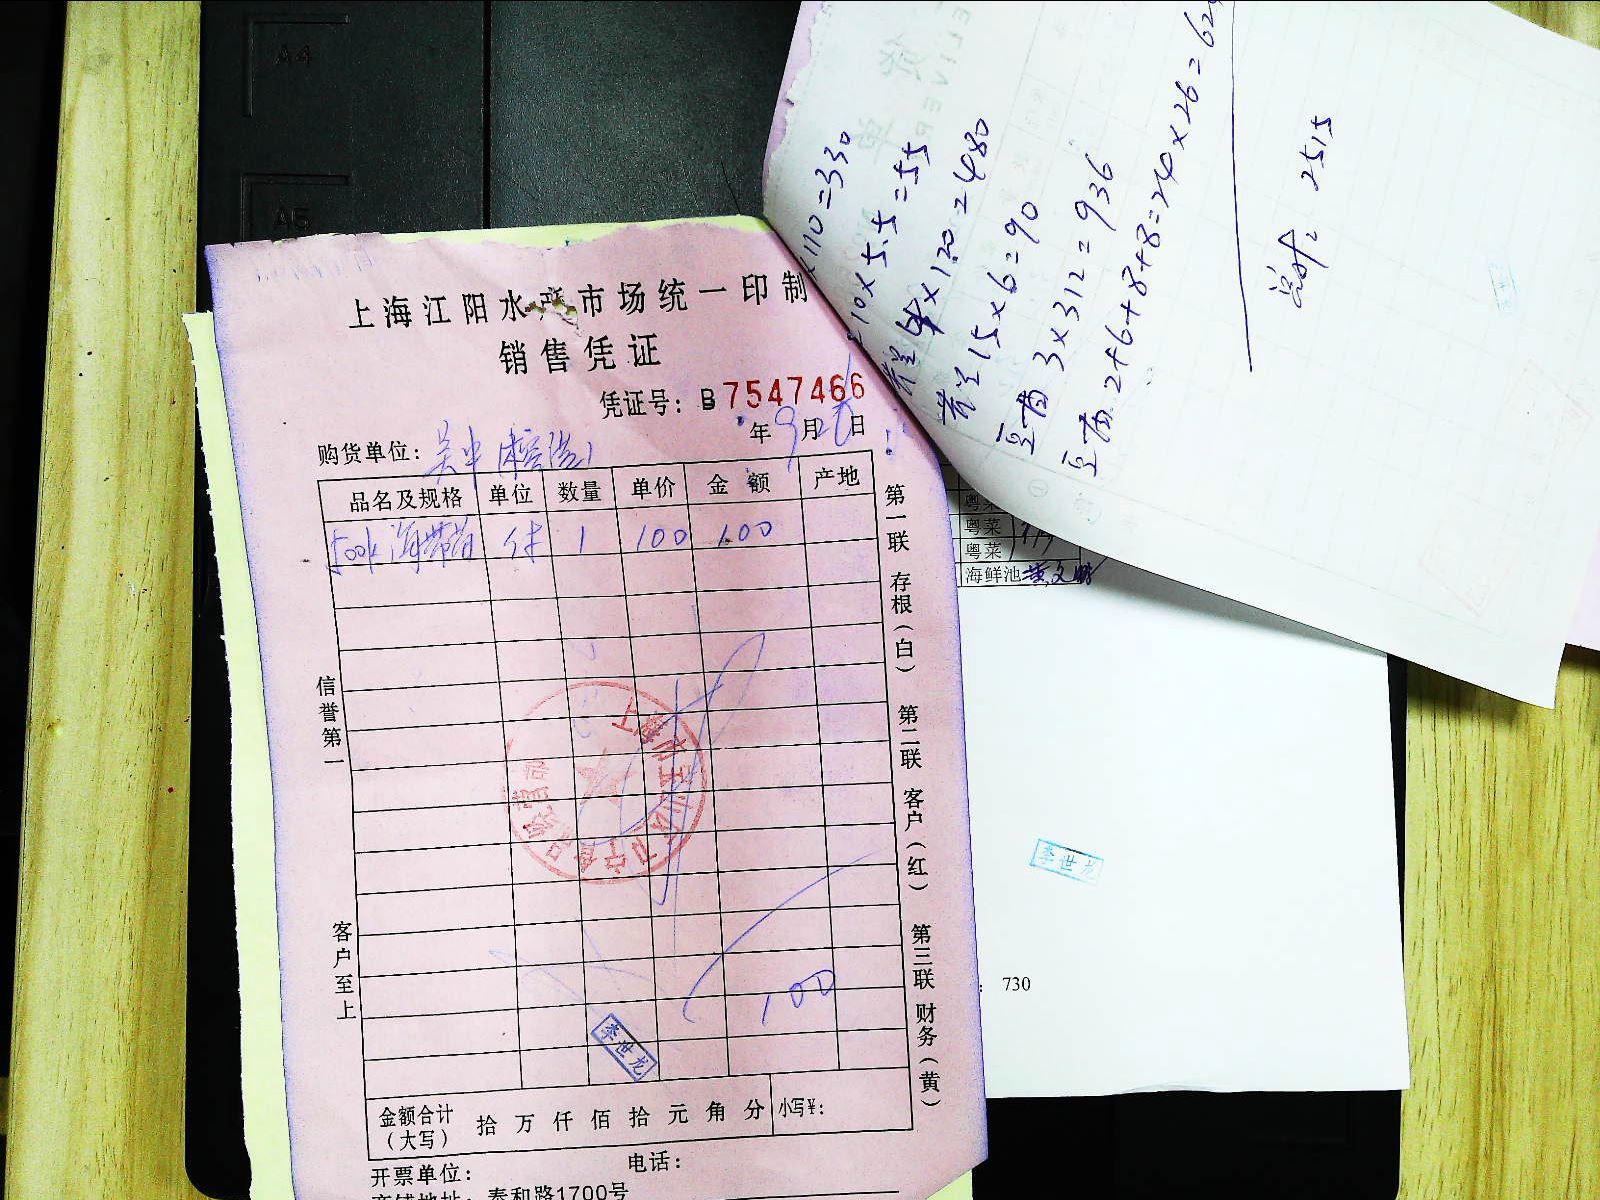 A4
A5
上海江阳水产市场统一印制
销售凭证
凭证号：B 7547466
年 9月 日
购货单位：吴中
品名及规格 单位 数量 单价 金额 产地
海带苗 件 1 100 100
100
信誉第一
客户至上
第一联 存根（白） 第二联 客户（红） 第三联 财务（黄）
李世龙
金额合计（大写） 拾 万 仟 佰 拾 元 角 分 小写¥：
开票单位： 电话：
商铺地址：泰和路1700号
×110=330
210×5.5=55
4×120=480
15×6=90
豆苗 3×312=936
豆苗 2+6+8+8=24×26=624
2515
粤菜
粤菜
粤菜
海鲜池
李世龙
：730